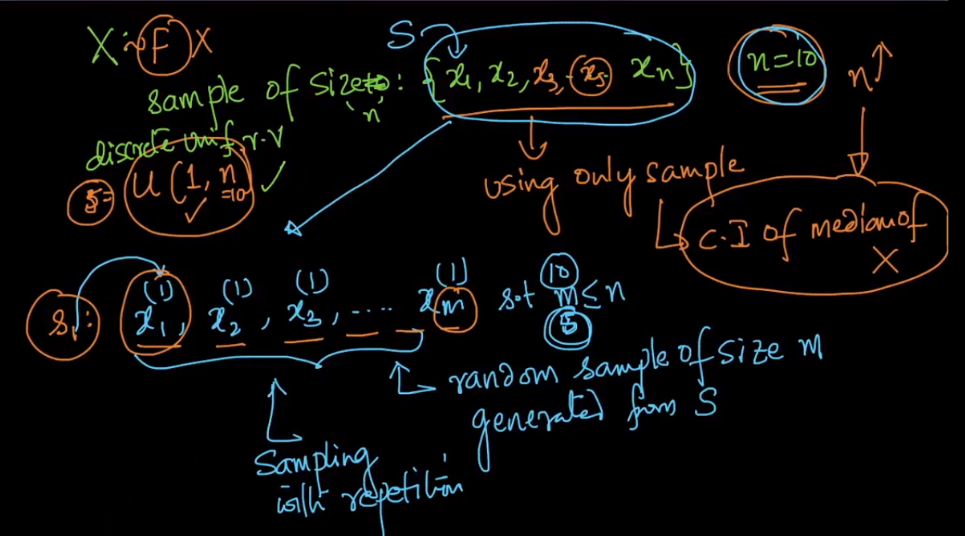 X ~ F X
S
sample of size n : { x1, x2, x3, .. x5 .. xn }
n=10
n↑
discrete unif r.v
5= U (1, n =10) ✓
using only sample
C.I of median of X
S1: x1(1), x2(1), x3(1), .... xm(1) s.t m ≤ n
10
5
random sample of size m
generated from S
Sampling
with repetition